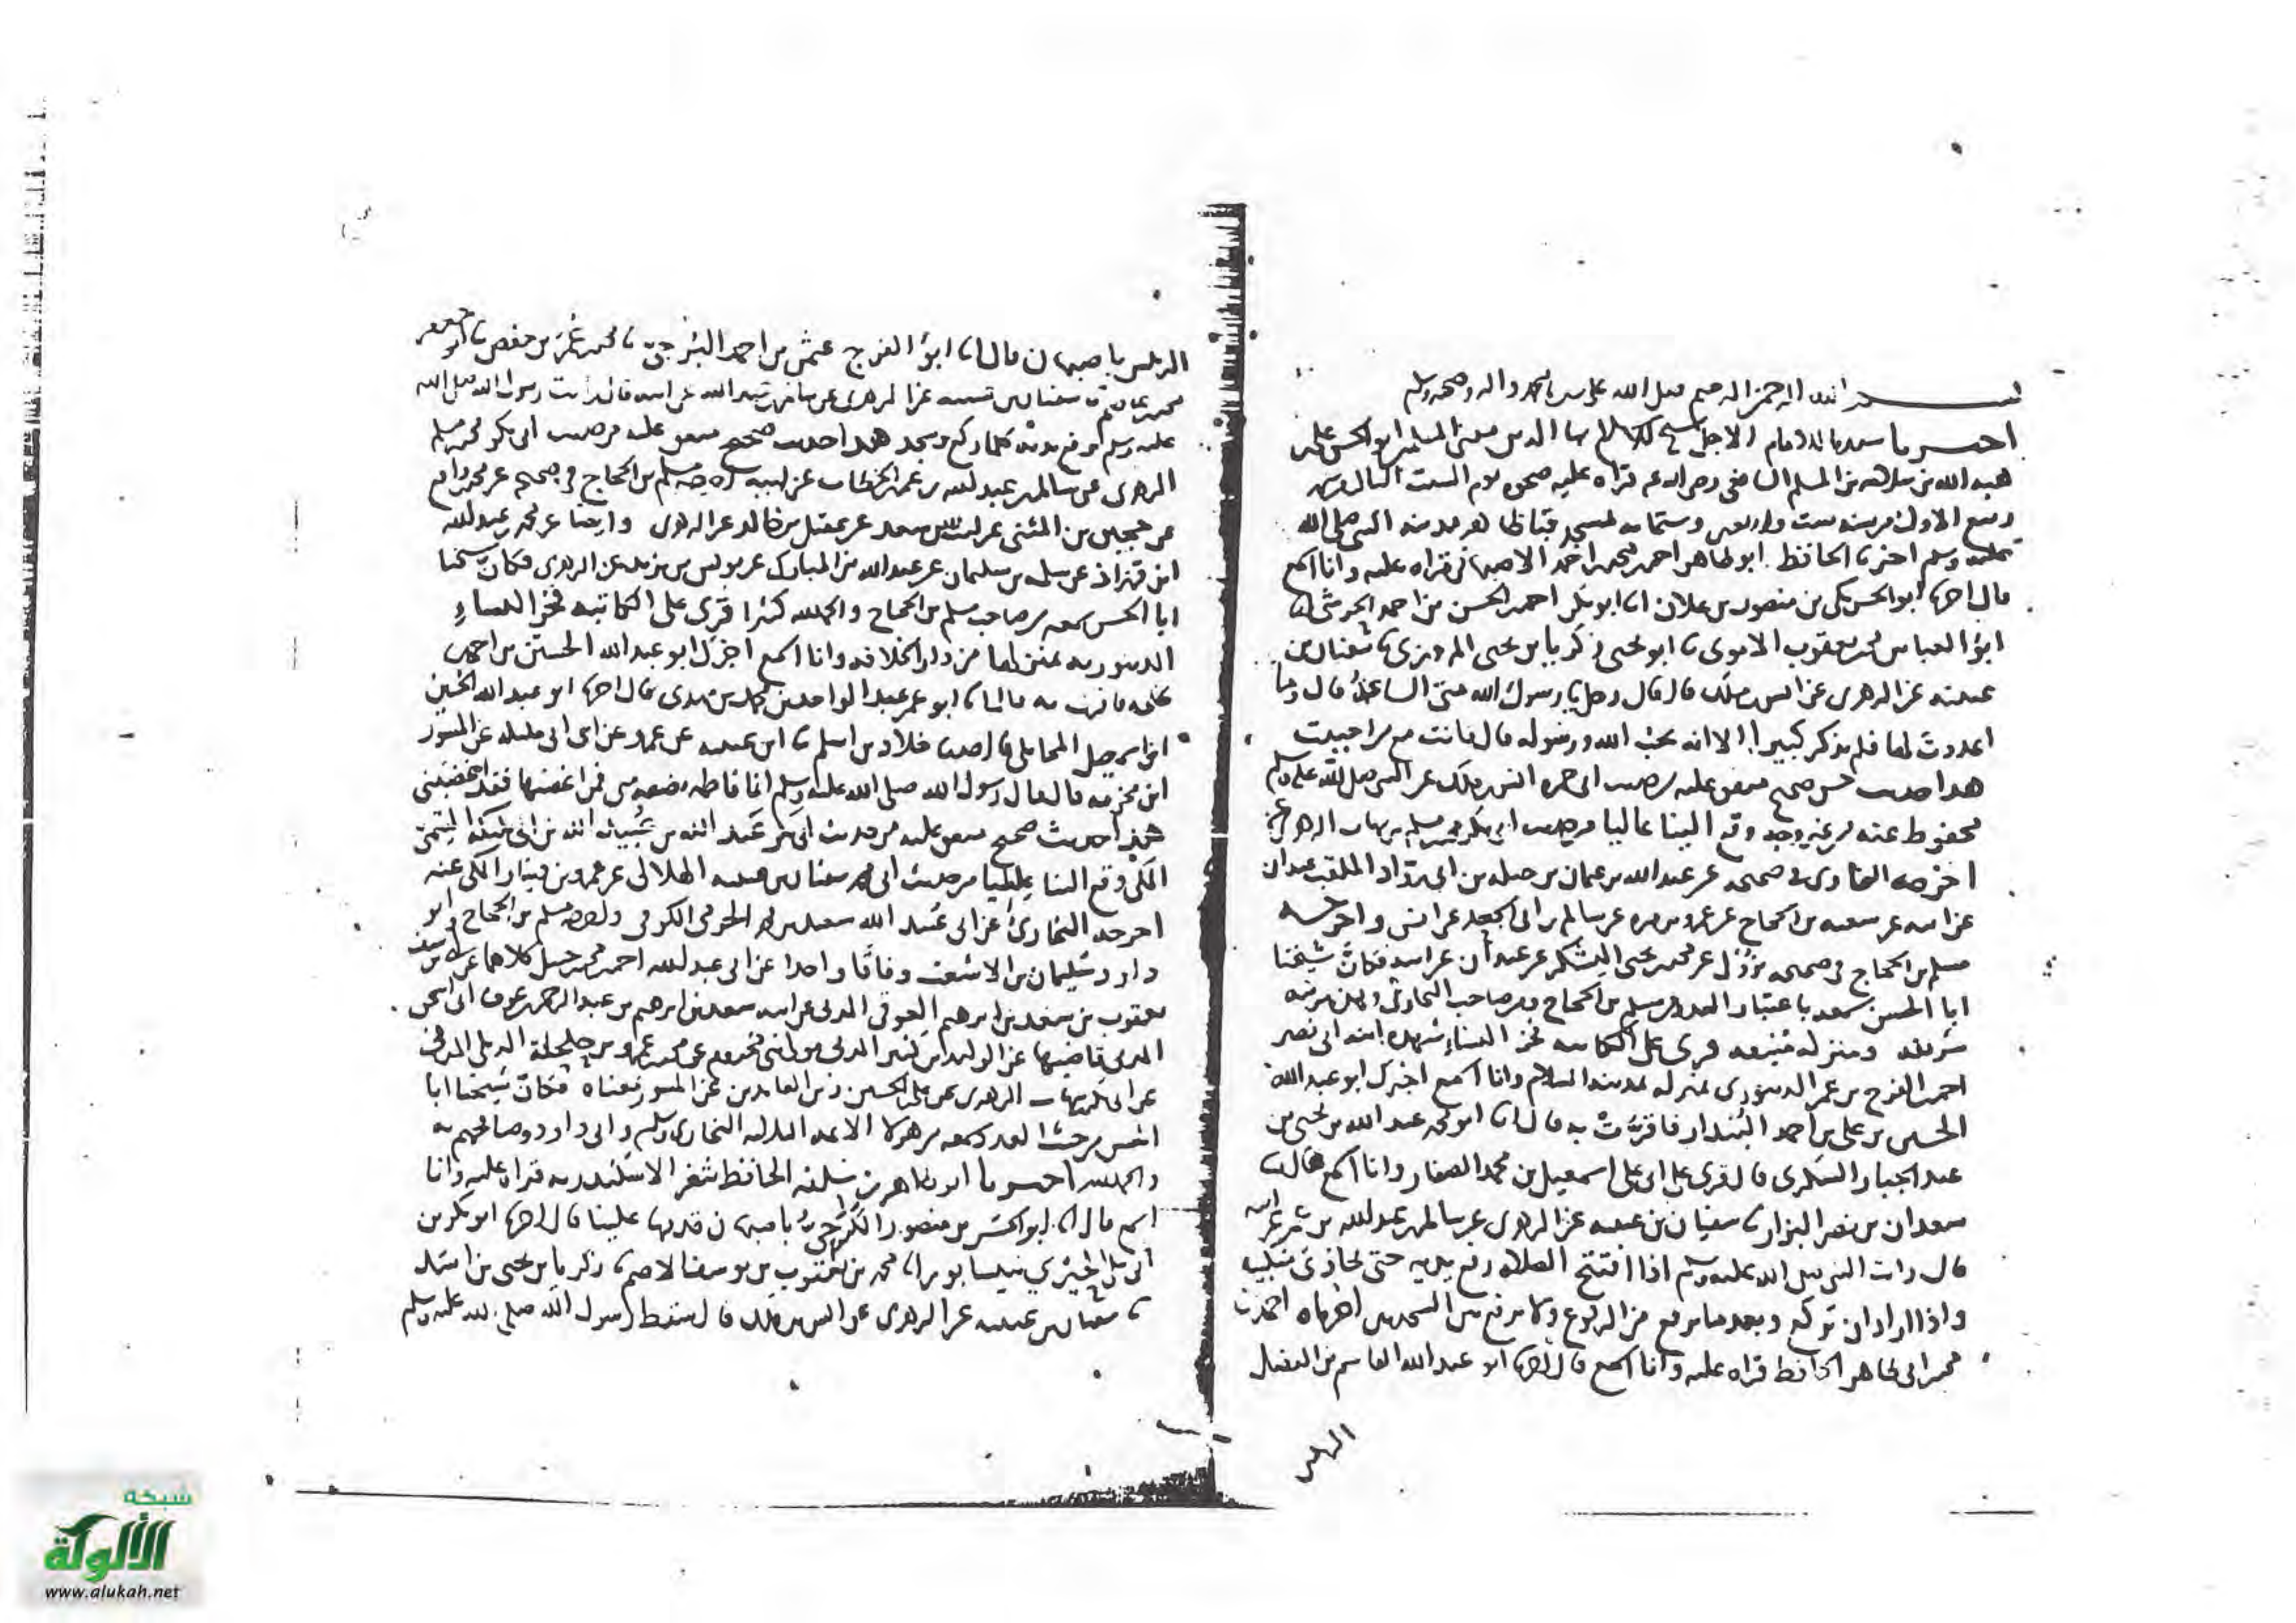 بسم الله الرحمن الرحيم صلى الله على سيدنا محمد واله وصحبه وسلم
اخبرنا سيدنا الامام الاجل بها الدين مفتي المسلمين ابو الحسن علي بن
هبة الله بن سلامة بن المسلم الشافعي رحمه الله قراه عليه ضحوه يوم السبت الثالث
ربيع الاول من سنه ست واربعين وستمايه بمسجد قباظاهر مدينه النبي صلى الله
عليه وسلم اخبرنا الحافظ ابو طاهر احمد بن محمد بن احمد الاصبهاني قراه عليه وانا اسمع
قال اخبرنا ابو الحسن مكي بن منصور بن علان انا ابو بكر احمد بن الحسن بن احمد الحرشي انا
ابو العباس محمد بن يعقوب الاموي نا ابو يحيى زكريا بن يحيى المروزي نا سفيان بن
عيينه عن الزهري عن انس بن ملك قال قال رجل يا رسول الله متى الساعة قال وما
اعددت لها فلم يذكر كبيرا الا انه يحب الله ورسوله قال فانت مع من احببت
هذا حديث حسن صحيح متفق عليه من حديث ابي حمزه انس بن ملك عن النبي صلى الله عليه وسلم
محفوظ عنه من غير وجه وقع الينا عاليا من حديث ابي بكر محمد بن مسلم بن شهاب الزهري عنه
اخرجه البخاري في صحيحه عن عبد الله بن عثمان بن جبله بن ابي رواد الملقب عبدان
عن ابيه عن شعبه بن الحجاج عن عمرو بن مره عن سالم بن ابي الجعد عن انس واخرجه
مسلم بن الحجاج في صحيحه عن محمد بن يحيى اليشكري عن عبدان عن ابيه فكان شيخنا
ابا الحسن سمعه باعتبار العدد من مسلم بن الحجاج ومن صاحب البخاري وهذه مرتبه
شريفه ومنزله منيفه قرئ على الكاتبه فخر النساء شهده ابنه ابي نصر
احمد بن الفرج بن عمر الدينوري بمنزله بمدينه السلام وانا اسمع اخبرك ابو عبد الله
الحسين بن علي بن احمد البندار فاقرت به قال انا ابو محمد عبد الله بن يحيى بن
عبد الجبار السكري قال قرئ على ابي علي اسمعيل بن محمد الصفار وانا اسمع قال نا
سعدان بن نصر البزار نا سفيان بن عيينه عن الزهري عن سالم بن عبد الله بن عمر عن ابيه
قال رايت النبي صلى الله عليه وسلم اذا افتتح الصلاه رفع يديه حتى يحاذي منكبيه
واذا اراد ان يركع وبعد ما يرفع من الركوع ولا يرفع بين السجدتين اخبرناه احمد بن
محمد ابي طاهر الحافظ قراه عليه وانا اسمع قال اخبرنا ابو عبد الله القاسم بن الفضل
الرئيس باصبهان قال انا ابو الفرج عثمن بن احمد البرجي نا محمد بن عمر بن حفص نا ابو جعفر
محمد بن عاصم نا سفيان بن عيينه عن الزهري عن سالم بن عبد الله عن ابيه قال رايت رسول الله صلى الله
عليه وسلم يرفع يديه كلما ركع وسجد هذا حديث صحيح متفق عليه من حديث ابي بكر محمد بن مسلم
الزهري عن سالم بن عبد الله بن عمر بن الخطاب عن ابيه اخرجه مسلم بن الحجاج في صحيحه عن محمد بن رافع
عن حجين بن المثنى عن ليث بن سعد عن عقيل بن خالد عن الزهري وايضا عن محمد بن عبد الله
ابن قهزاذ عن سلمه بن سليمان عن عبد الله بن المبارك عن يونس بن يزيد عن الزهري فكان شيخنا
ابا الحسن سمعه من صاحب مسلم بن الحجاج والحمد لله كثيرا قرئ على الكاتبه فخر النساء
الدينوريه بمنزلها من دار الخلافه وانا اسمع اخبرك ابو عبد الله الحسين بن احمد بن
فاقرت به قال انا ابو عمر عبد الواحد بن محمد بن مهدي قال اخبرنا ابو عبد الله الحسين
ابن اسمعيل المحاملي قال حدثنا خلاد بن اسلم نا ابن عيينه عن عمرو عن ابن ابي مليكه عن المسور
ابن مخرمه قال قال رسول الله صلى الله عليه وسلم انما فاطمه بضعه مني فمن اغضبها فقد اغضبني
هذا حديث صحيح متفق عليه من حديث ابي بكر عبد الله بن عبيد الله بن ابي مليكه التيمي
المكي وقع الينا عاليا من حديث ابي محمد سفيان بن عيينه الهلالي عن عمرو بن دينار المكي عنه
اخرجه البخاري عن ابي عبد الله سعيد بن محمد الجرمي الكوفي واخرجه مسلم بن الحجاج وابو
داود سليمان بن الاشعث وفاقا واحدا عن ابي عبد الله احمد بن محمد بن حنبل كلاهما عن ابي يوسف
يعقوب بن سعد بن ابرهيم العوفي المدني عن ابيه سعد بن ابرهيم بن عبد الرحمن بن عوف ابي اسحق
المدني قاضيها عن الوليد بن كثير المدني مولى بني مخزوم عن محمد بن عمرو بن حلحلة الديلي المدني
عن ابي بكر بن شهاب الزهري عن علي بن الحسين زين العابدين عن المسور بمعناه فكان شيخنا ابا
الحسن من حيث العدد سمعه من هولا الايمه الثلاثه البخاري ومسلم وابي داود وصافحهم به
والحمد لله اخبرنا ابو طاهر بن سلفه الحافظ بثغر الاسكندريه قراه عليه وانا
اسمع قال انا ابو الحسن بن منصور الكرجي باصبهان قدمها علينا قال اخبرنا ابو بكر بن
ابي علي الحيري بنيسابور انا محمد بن يعقوب بن يوسف الاصم نا زكريا بن يحيى بن اسد
نا سفيان بن عيينه عن الزهري عن انس بن ملك قال سقط رسول الله صلى الله عليه وسلم
الرئيس
شبكة
الألوكة
www.alukah.net